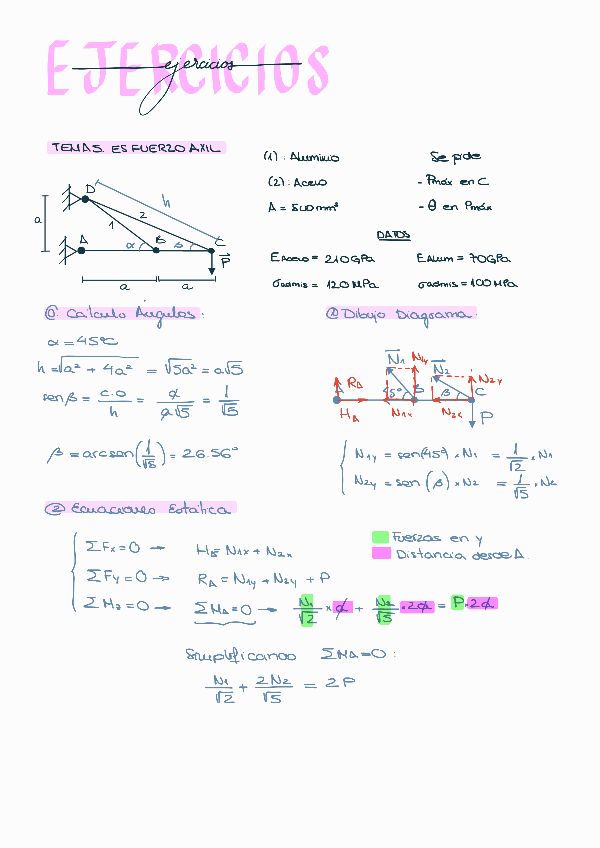 EJERCICIOS
ejercicios
TEMA 5. ESFUERZO AXIL
(1): Aluminio
(2): Acero
A = 500 mm²
Se pide
- Pmáx en C
- θ en Pmáx
DATOS
EAcero = 210GPa
EAlum = 70GPa
σadmis = 120 MPa
σadmis = 100 MPa
D
h
2
1
a
A
α
B
β
C
P
a
a
⓪ Cálculo Ángulos:
α = 45ºC
h = √a² + 4a² = √5a² = a√5
sen β = c.o/h = a/a√5 = 1/√5
β = arcsen(1/√5) = 26.56º
① Dibujo Diagrama:
N1
N1y
N2
N2y
RA
A
45º
B
β
C
HA
N1x
N2x
P
N1y = sen(45º) · N1 = 1/√2 · N1
N2y = sen(β) · N2 = 1/√5 · N2
② Ecuaciones Estática
Fuerzas en y
Distancia desde A.
ΣFx = 0 → HB = N1x + N2x
ΣFy = 0 → RA = N1y + N2y + P
ΣMz = 0 → ΣMA = 0 → N1/√2 × a + N2/√5 · 2a = P · 2a
Simplificando ΣMA = 0:
N1/√2 + 2N2/√5 = 2P